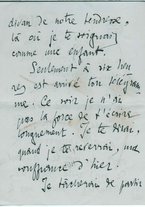 divan de notre tendresse,
là où je te soignais
comme une enfant.
Seulement à six heu
res est arrivé ton télégram
me. Ce soir je n'ai
pas la force de t'écrire
longuement. Je te dirai,
quand je te reverrai, ma
souffrance d'hier.
Je tâcherai de partir